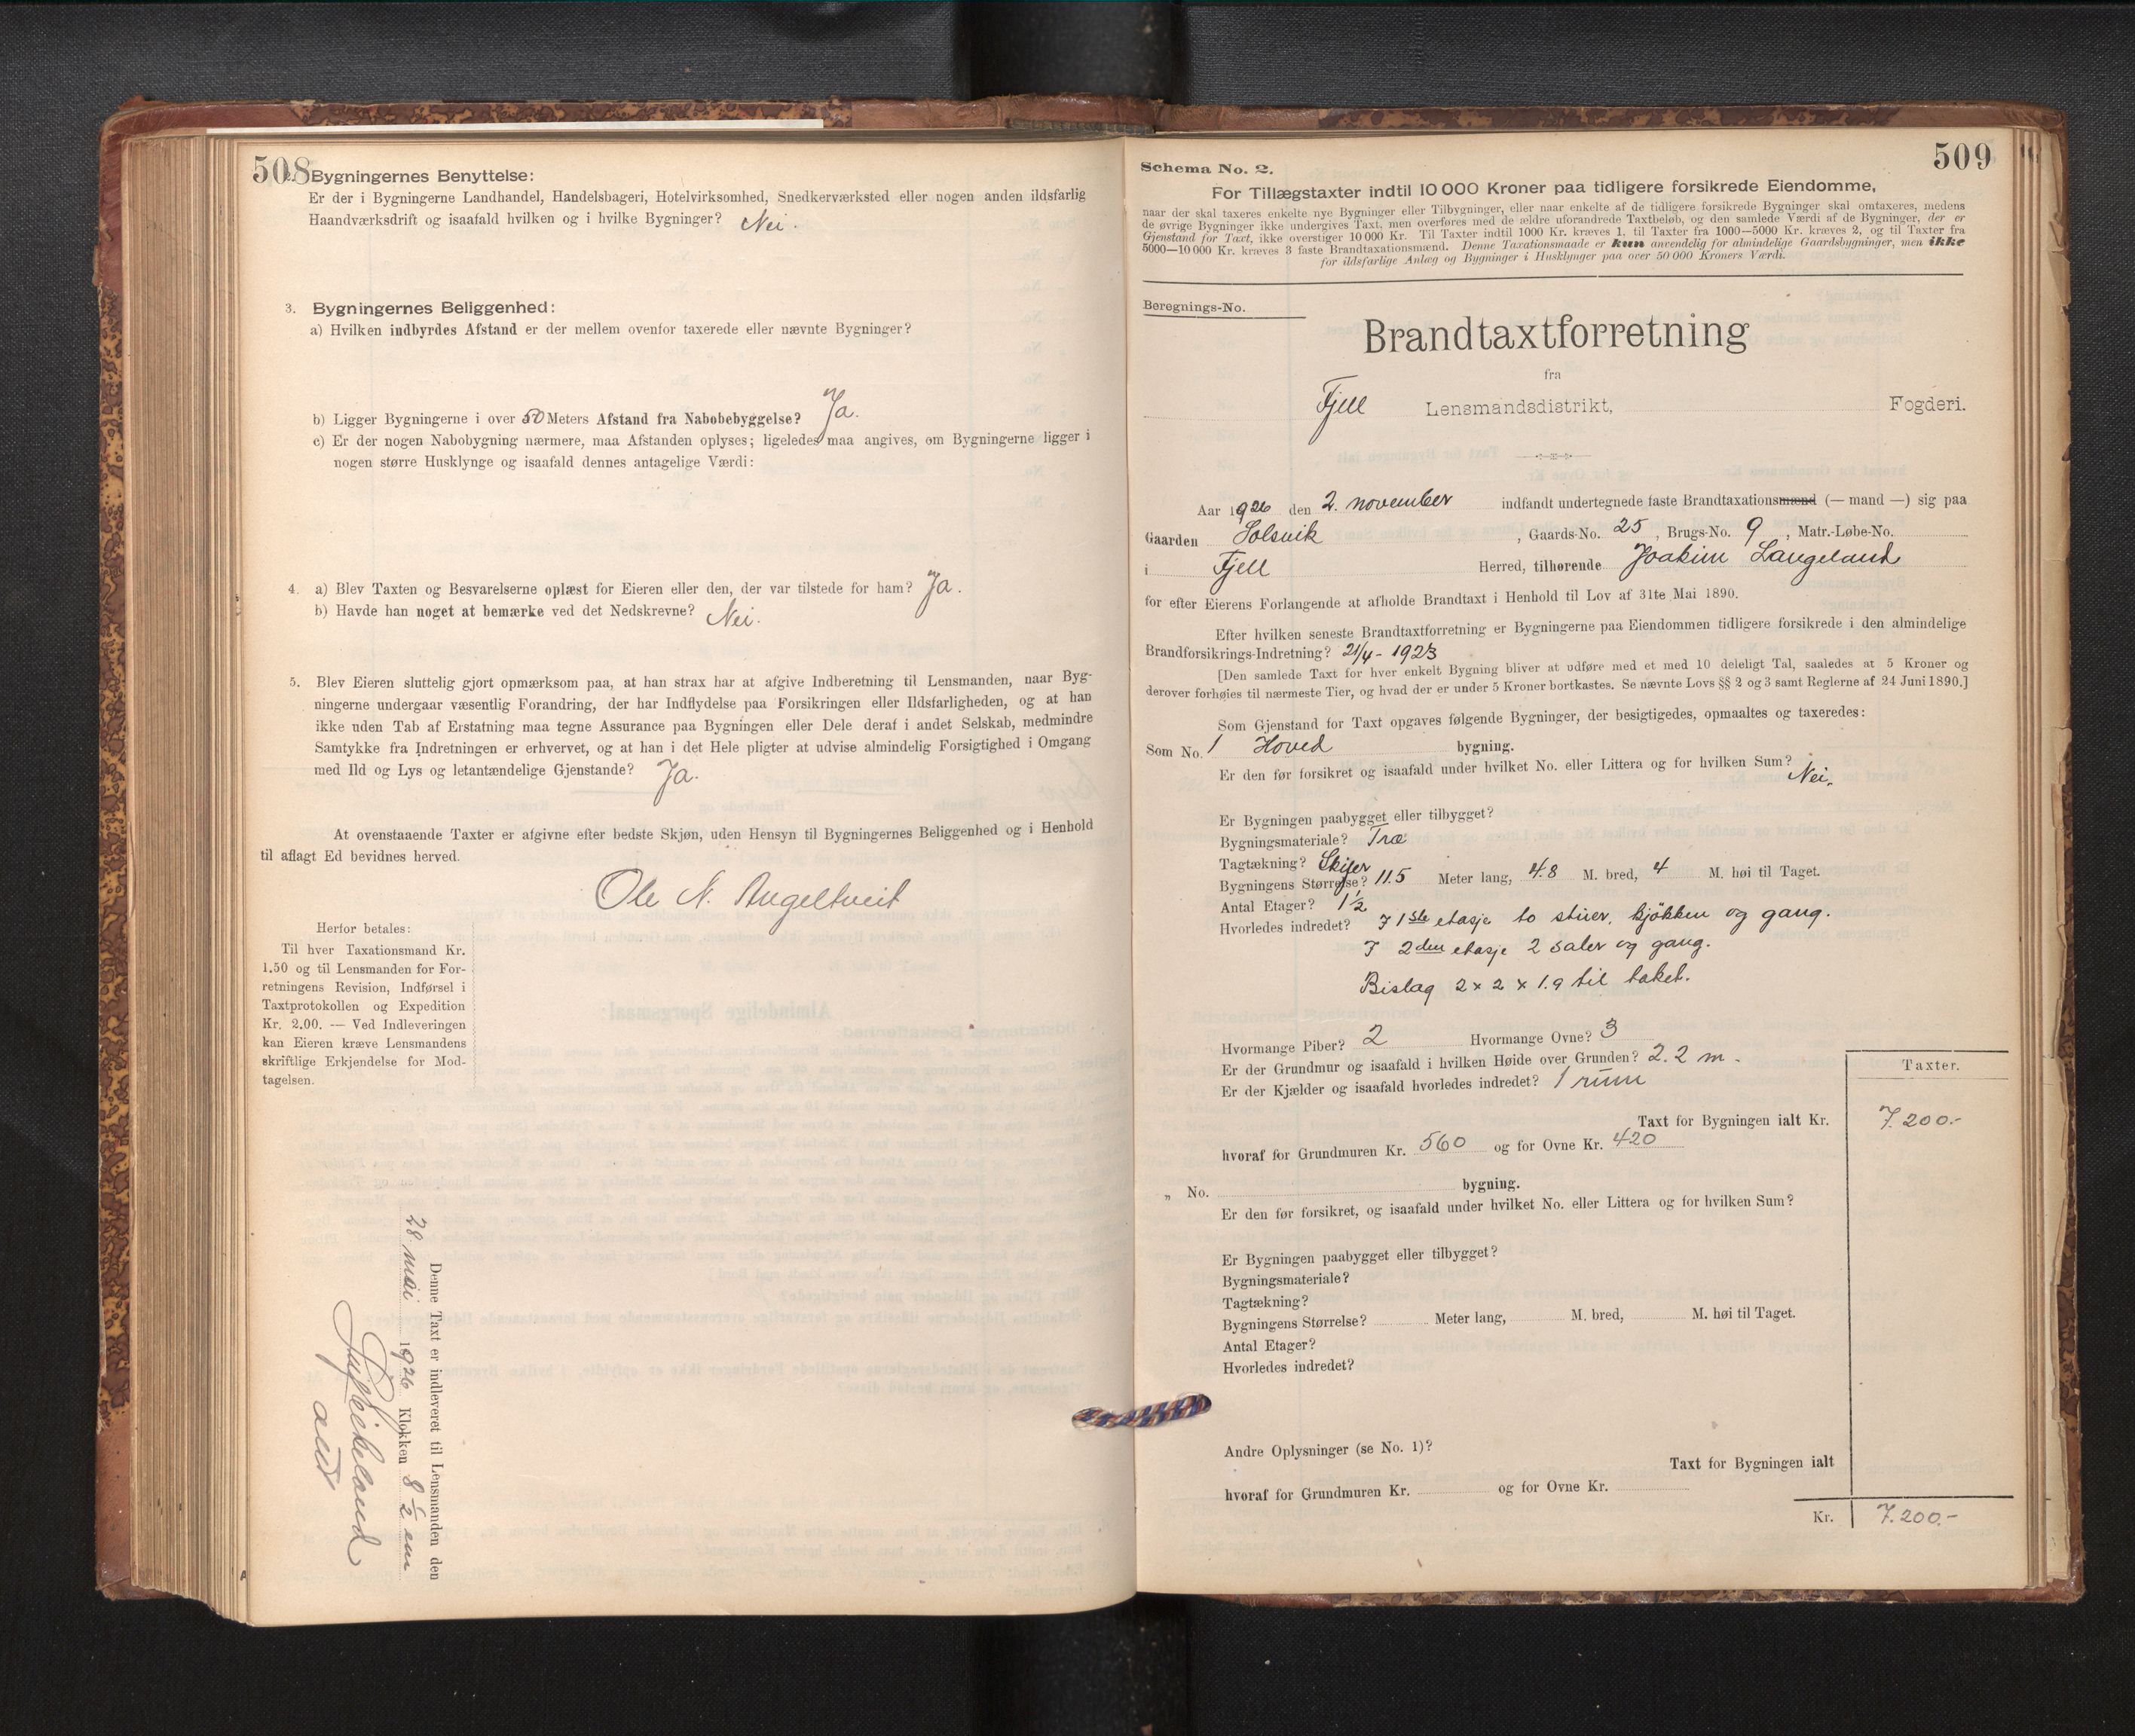 508
2. Bygningernes Benyttelse:
Er der i Bygningerne Landhandel, Handelsbageri, Hotelvirksomhed, Snedkerværksted eller nogen anden ildsfarlig
Haandværksdrift og isaafald hvilken og i hvilke Bygninger? Nei.
3. Bygningernes Beliggenhed:
a) Hvilken indbyrdes Afstand er der mellem ovenfor taxerede eller nævnte Bygninger?
b) Ligger Bygningerne i over 50 Meters Afstand fra Nabobebyggelse? Ja.
c) Er der nogen Nabobygning nærmere, maa Afstanden oplyses; ligeledes maa angives, om Bygningerne ligger i
nogen større Husklynge og isaafald dennes antagelige Værdi:
4. a) Blev Taxten og Besvarelserne oplæst for Eieren eller den, der var tilstede for ham? Ja.
b) Havde han noget at bemærke ved det Nedskrevne? Nei.
5. Blev Eieren sluttelig gjort opmærksom paa, at han strax har at afgive Indberetning til Lensmanden, naar Byg-
ningerne undergaar væsentlig Forandring, der har Indflydelse paa Forsikringen eller Ildsfarligheden, og at han
ikke uden Tab af Erstatning maa tegne Assurance paa Bygningen eller Dele deraf i andet Selskab, medmindre
Samtykke fra Indretningen er erhvervet, og at han i det Hele pligter at udvise almindelig Forsigtighed i Omgang
med Ild og Lys og letantændelige Gjenstande? Ja.
At ovenstaaende Taxter er afgivne efter bedste Skjøn, uden Hensyn til Bygningernes Beliggenhed og i Henhold
til aflagt Ed bevidnes herved.
Ole N. Angeltveit
Herfor betales:
Til hver Taxationsmand Kr.
1.50 og til Lensmanden for For-
retningens Revision, Indførsel i
Taxtprotokollen og Expedition
Kr. 2.00. — Ved Indleveringen
kan Eieren kræve Lensmandens
skriftlige Erkjendelse for Mod-
tagelsen.
Denne Taxt er indleveret til Lensmanden den
28 mai 1926 Klokken 8 1/2 em
509
Schema No. 2.
For Tillægstaxter indtil 10 000 Kroner paa tidligere forsikrede Eiendomme,
naar der skal taxeres enkelte nye Bygninger eller Tilbygninger, eller naar enkelte af de tidligere forsikrede Bygninger skal omtaxeres, medens
de øvrige Bygninger ikke undergives Taxt, men overføres med de ældre uforandrede Taxtbeløb, og den samlede Værdi af de Bygninger, der er
Gjenstand for Taxt, ikke overstiger 10 000 Kr. Til Taxter indtil 1000 Kr. kræves 1, til Taxter fra 1000—5000 Kr. kræves 2, og til Taxter fra
5000—10 000 Kr. kræves 3 faste Brandtaxationsmænd. Denne Taxationsmaade er kun anvendelig for almindelige Gaardsbygninger, men ikke
for ildsfarlige Anlæg og Bygninger i Husklynger paa over 50 000 Kroners Værdi.
Beregnings-No.
Brandtaxtforretning
fra
Fjell Lensmandsdistrikt, Fogderi.
Aar 1926 den 2. november indfandt undertegnede faste Brandtaxationsmænd (— mand —) sig paa
Gaarden Solsvik, Gaards-No. 25, Brugs-No. 9, Matr.-Løbe-No.
i Fjell Herred, tilhørende Joakim Langeland
for efter Eierens Forlangende at afholde Brandtaxt i Henhold til Lov af 31te Mai 1890.
Efter hvilken seneste Brandtaxtforretning er Bygningerne paa Eiendommen tidligere forsikrede i den almindelige
Brandforsikrings-Indretning? 21/4 - 1923
[Den samlede Taxt for hver enkelt Bygning bliver at udføre med et med 10 deleligt Tal, saaledes at 5 Kroner og
derover forhøies til nærmeste Tier, og hvad der er under 5 Kroner bortkastes. Se nævnte Lovs §§ 2 og 3 samt Reglerne af 24 Juni 1890.]
Som Gjenstand for Taxt opgaves følgende Bygninger, der besigtigedes, opmaaltes og taxeredes:
Som No. 1 Hoved bygning.
Er den før forsikret og isaafald under hvilket No. eller Littera og for hvilken Sum? Nei.
Er Bygningen paabygget eller tilbygget?
Bygningsmateriale? Træ
Tagtækning? Skifer
Bygningens Størrelse? 11.5 Meter lang, 4.8 M. bred, 4 M. høi til Taget.
Antal Etager? 1 1/2
Hvorledes indredet? I 1ste etasje to stuer, kjøkken og gang.
I 2den etasje 2 saler og gang.
Bislag 2 x 2 x 1.9 til taket.
Hvormange Piber? 2 Hvormange Ovne? 3
Er der Grundmur og isaafald i hvilken Høide over Grunden? 2.2 m.
Er der Kjælder og isaafald hvorledes indredet? 1 rum
Taxter.
Taxt for Bygningen ialt Kr. 7.200.-
hvoraf for Grundmuren Kr. 560 og for Ovne Kr. 420
„ No. bygning.
Er den før forsikret, og isaafald under hvilket No. eller Littera og for hvilken Sum?
Er Bygningen paabygget eller tilbygget?
Bygningsmateriale?
Tagtækning?
Bygningens Størrelse? Meter lang, M. bred, M. høi til Taget.
Antal Etager?
Hvorledes indredet?
Andre Oplysninger (se No. 1)?
Taxt for Bygningen ialt
hvoraf for Grundmuren Kr. og for Ovne Kr.
Kr. 7.200.-